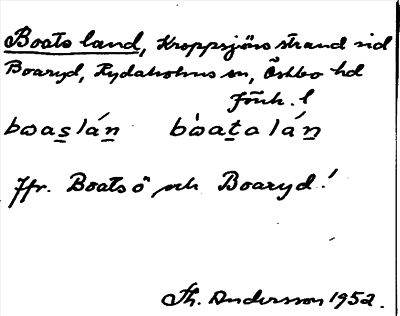 Boats land, Kroppsjöns strand vid
Boaryd, Rydaholms sn, Östbo hd
Jönk. l
bωas̲lán̲ bὼat̲alán̲
Jfr. Boatsö och Boaryd!
Th. Andersson 1952.